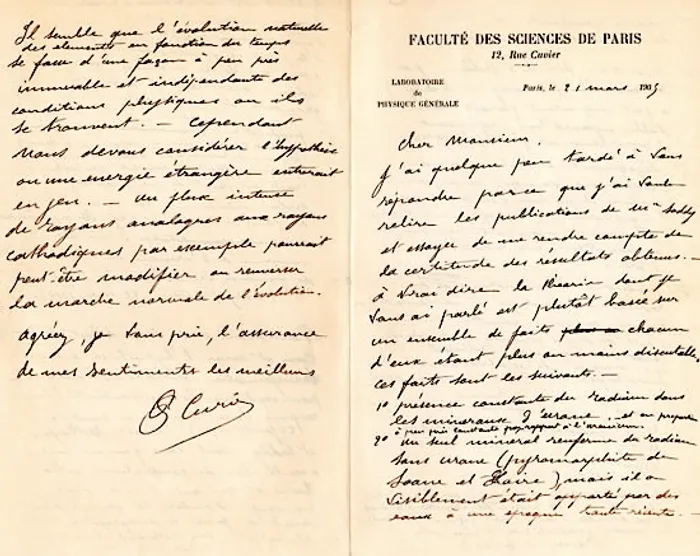 Il semble que l'évolution naturelle
des elements en fonction du temps
se fasse d'une façon à peu près
immuable et indépendante des
conditions physiques ou ils
se trouvent. — Cependant
nous devons considérer l'hypothèse
ou une energie étrangère entrerait
en jeu. — Un flux intense
de rayons analogues aux rayons
cathodiques par exemple pourrait
peut-être modifier ou renverser
la marche normale de l'évolution.
Agréez, je vous prie, l'assurance
de mes sentiments les meilleurs
P Curie
FACULTÉ DES SCIENCES DE PARIS
12, Rue Cuvier
LABORATOIRE
de
PHYSIQUE GÉNÉRALE
Paris, le 21 mars 1905
Cher Monsieur,
J'ai quelque peu tardé à vous
répondre parce que j'ai voulu
relire les publications de Mr Soddy
et essayer de me rendre compte de
la certitude des résultats obtenus. —
à vrai dire la théorie dont je
vous ai parlé est plutôt basée sur
un ensemble de faits chacun
d'eux étant plus ou moins discutable,
ces faits sont les suivants. —
1º présence constante du radium dans
les mineraux d'urane, et en
à peu près constante par rapport à l'uranium.
2º Un seul mineral renferme du radium
sans urane (pyromorphite de
Saone et Loire), mais il a
visiblement était apporté par des
eaux à une époque toute récente. —